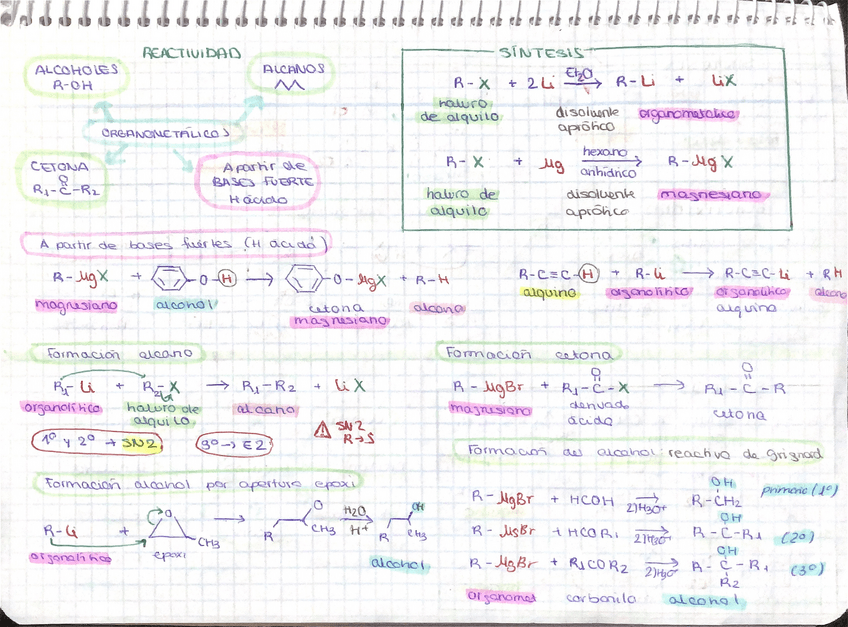 REACTIVIDAD
ALCOHOLES
R-OH
ALCANOS
ORGANOMETÁLICOS
CETONA
O
R₁-C-R₂
A partir de
BASES FUERTE
H ácido
SÍNTESIS
R-X + 2Li Et₂O → R-Li + LiX
haluro
de alquilo
disolvente
aprótico
organometalico
R-X + Mg hexano → R-MgX
anhídrico
haluro de
alquilo
disolvente
aprótico
magnesiano
A partir de bases fuertes (H ácido)
R-MgX + O-H → O-MgX + R-H
magnesiano alcohol cetona alcano
magnesiano
R-C≡C-H + R-Li → R-C≡C-Li + RH
alquino organolítico organolítico alcano
alquino
Formación alcano
R₁-Li + R₂-X → R₁-R₂ + LiX
organolítico haluro de alcano
alquilo
1º y 2º → SN2
3º → E2
SN2
R→S
Formación cetona
R-MgBr + R₁-C-X → R₁-C-R
O O
magnesiano derivado cetona
ácido
Formación alcohol por apertura epoxi
R-Li + O CH₃ → R O CH₃ H₂O H⁺ → R OH CH₃
organolítico epoxi alcohol
Formación del alcohol: reactivo de grignard
R-MgBr + HCOH 2)H₃O⁺ → R-CH₂ primario (1º)
OH
R-MgBr + HCOR₁ 2)H₃O⁺ → R-C-R₁ (2º)
OH
R-MgBr + R₁COR₂ 2)H₃O⁺ → R-C-R₁ (3º)
OH
R₂
organomet carbonilo alcohol